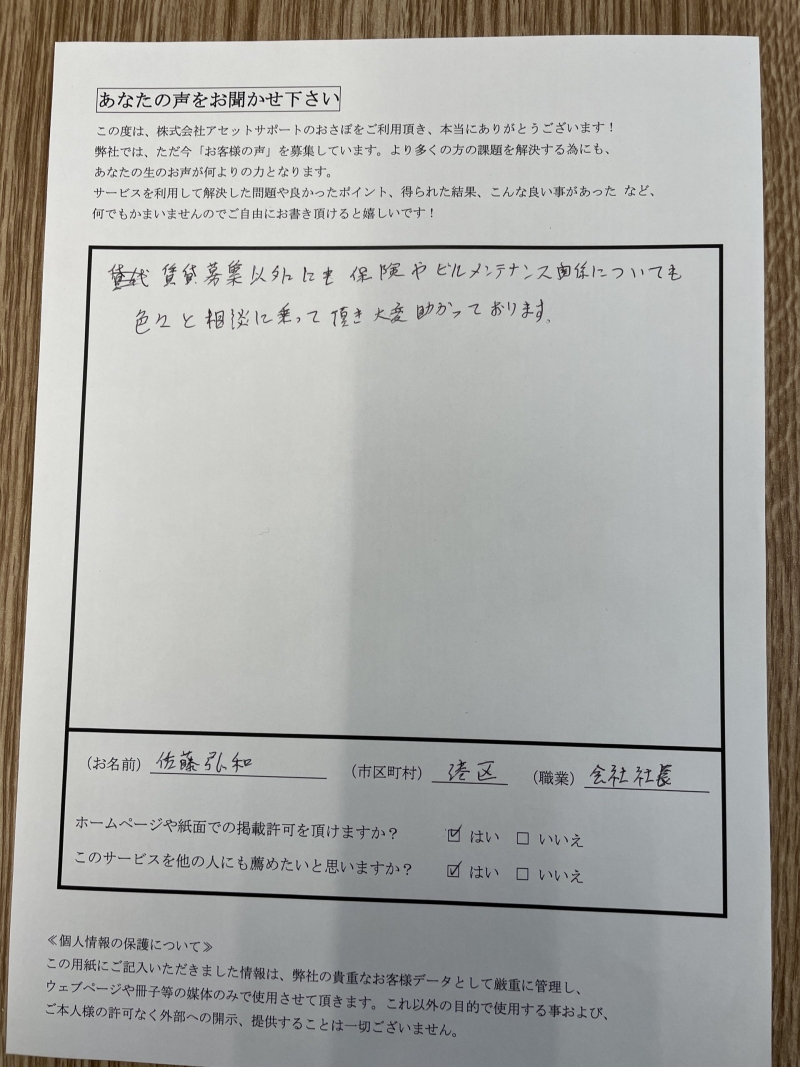 あなたの声をお聞かせ下さい
この度は、株式会社アセットサポートのおさぽをご利用頂き、本当にありがとうございます！
弊社では、ただ今「お客様の声」を募集しています。より多くの方の課題を解決する為にも、
あなたの生のお声が何よりの力となります。
サービスを利用して解決した問題や良かったポイント、得られた結果、こんな良い事があった など、
何でもかまいませんのでご自由にお書き頂けると嬉しいです！
賃貸募集以外にも 保険やビルメンテナンス関係についても
色々と相談に乗って頂き大変助かっております。
（お名前） 佐藤弘和 （市区町村） 港区 （職業） 会社社長
ホームページや紙面での掲載許可を頂けますか？ ☑ はい □ いいえ
このサービスを他の人にも薦めたいと思いますか？ ☑ はい □ いいえ
≪個人情報の保護について≫
この用紙にご記入いただきました情報は、弊社の貴重なお客様データとして厳重に管理し、
ウェブページや冊子等の媒体のみで使用させて頂きます。これ以外の目的で使用する事および、
ご本人様の許可なく外部への開示、提供することは一切ございません。